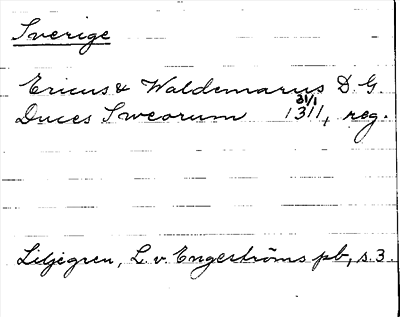 Sverige
Ericus & Waldemarus D. G.
31/1
Duces Sweorum 1311, reg.
Liljegren, L. v. Engeströms pb, s. 3.